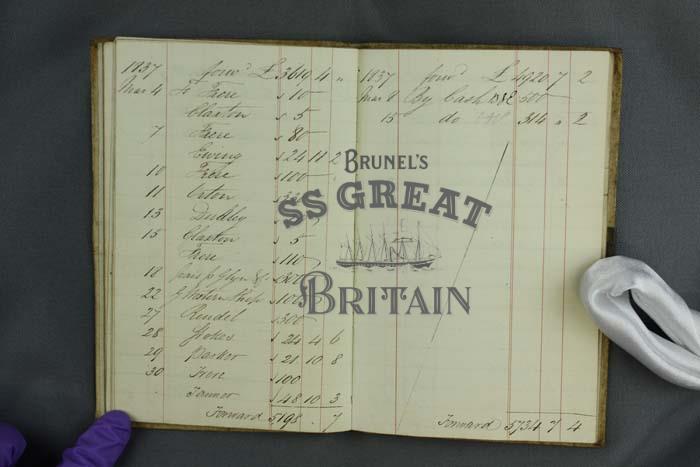 1837 forwd £3619 4 "
Mar 4 To Frere " 10
Claxton " 5
7 Frere " 80
Ewing " 24 11 2
10 Frere " 100
11 Orton
13
15 Claxton " 5
Frere " 110
18 paid p Glyn &c
22 G Western Ship
27 Rendel " 300
28 Stokes " 24 4 6
29 Barker " 21 10 8
30 Frere " 100
" 48 10 3
Forward 5198 . 7
1837 forwd £ 4920 7 2
Mar 8 By Cash 500
15 do 314 " 2
Forward 5734 7 4
BRUNEL'S
SS GREAT
BRITAIN